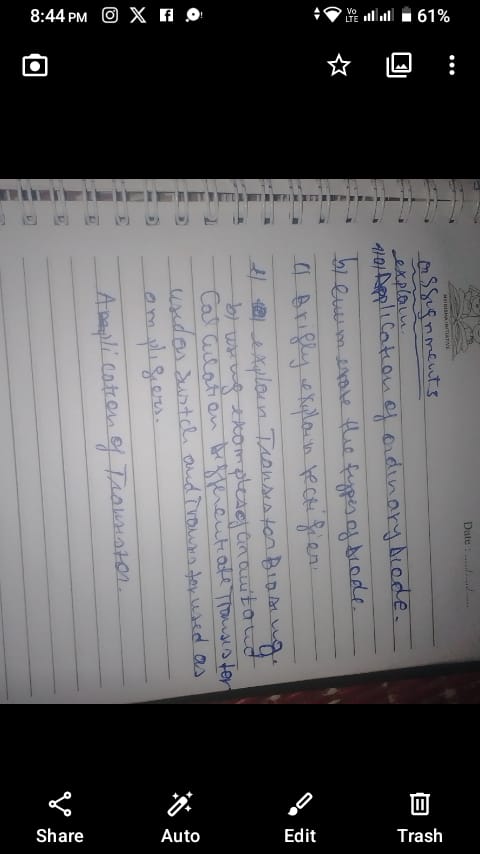 8:44 PM
Vo LTE
61%
Date :
assignments
explain
1a) Application of ordinary Diode.
b) enumerate the types of Diode.
c) Briefly explain rectifier.
2) explain Transistor Biasing.
b) using examples of circuit and
Calculation differentiate Transistor
used as switch and Transistor used as
amplifiers.
Application of Transistor.
Share
Auto
Edit
Trash